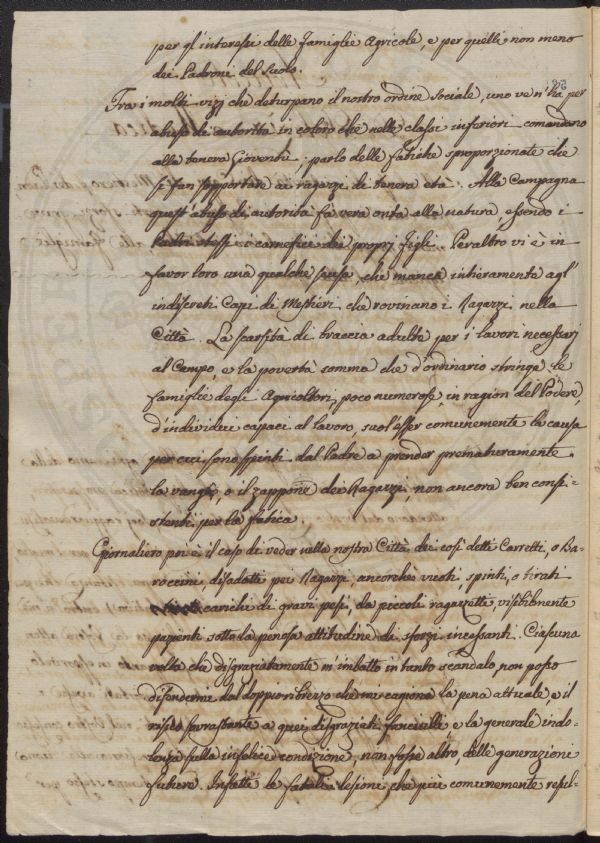 per gl'interessi delle famiglie Agricole, e per quelli non meno
dei Padroni del Suolo.
Tra i molti vizj che deturpano il nostro ordine sociale, uno ve n'ha per
abuso di autorità in coloro che nelle classi inferiori comandano
alla tenera Gioventù: parlo delle fatiche sproporzionate che
si fan sopportare ai ragazzi di tenera età. Alla Campagna
quest'abuso di autorità fà vera onta alla natura, essendo i
Padri stessi i carnefici dei proprj figli. Peraltro vi è in
favor loro una qualche scusa, che manca intieramente agl'
indiscreti Capi di Mestieri, che rovinano i Ragazzi nella
Città. La scarsità di braccia adulte per i lavori necessarj
al Campo, e la povertà somma che d'ordinario stringe le
famiglie degli Agricoltori, poco numerose, in ragion del Podere,
d'individui capaci al lavoro, suol'esser comunemente la causa
per cui sono spinti dal Padre a prender prematuramente
la vanga, o il zappone dei Ragazzi, non ancora ben consi-
stenti per la fatica.
Giornaliero poi è il caso di veder nella nostra Città dei così detti Carretti, o Ba-
roccini, disadatti pei Ragazzi, ancorchè vuoti, spinti, o tirati
carichi di gravi pesi, da piccoli ragazzetti visibilmente
pazienti sotto la penosa attitudine di sforzi incessanti. Ciascuna
volta che disgraziatamente m'imbatto in tanto scandalo, non posso
difendermi dal doppio ribrezzo che mi cagiona la pena attuale, e il
rischio sovrastante a quei disgraziati fanciulli e la generale indo-
lenza sulla infelice condizione, non fosse altro, delle generazioni
future. Infatti le fatali lesioni che più comunemente resul-